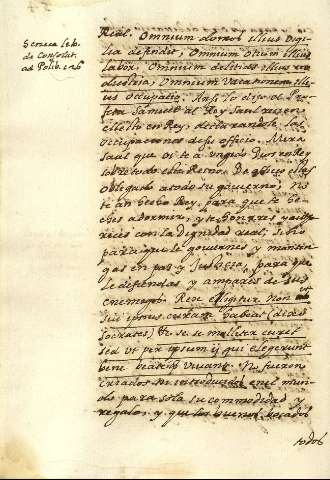 Seneca lib.
de Consolat.
ad Polib. c. 26
Real. Omnium domos illius vigi
lia defendit, omnium otium illius
labor, omnium delitias illius in
dustria, omnium vacationem il
lius occupatio. Assi lo dijo el Pro
feta Samuel al Rey Saul recien
electo en Rey, declarandole las
occupaciones de su officio. Mira
Saul que Dios te a ungido por Rey
sobre todo este Reyno. De officio estas
obligado a todo su govierno, no
te an hecho Rey, para que te he
ches a dormir, y te honrres y auto
rices con la dignidad real, sino
para que le governes y manten
gas en paz y Justicia, para que
le defiendas y ampares de sus
enemigos. Rex eligitur non ut
sui ipsius curam habeat (dice
Socrates)
sed ut per ipsum ij qui elegerunt
bene beateque vivant. No fueron
criados ni introducidos en el mun
do para sola su commodidad y
regalo, y que los buenos bocados
todos